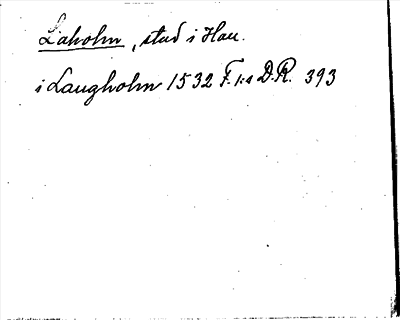 Laholm, stad i Hall.
i Laugholm 1532 F. I:s D.R. 393